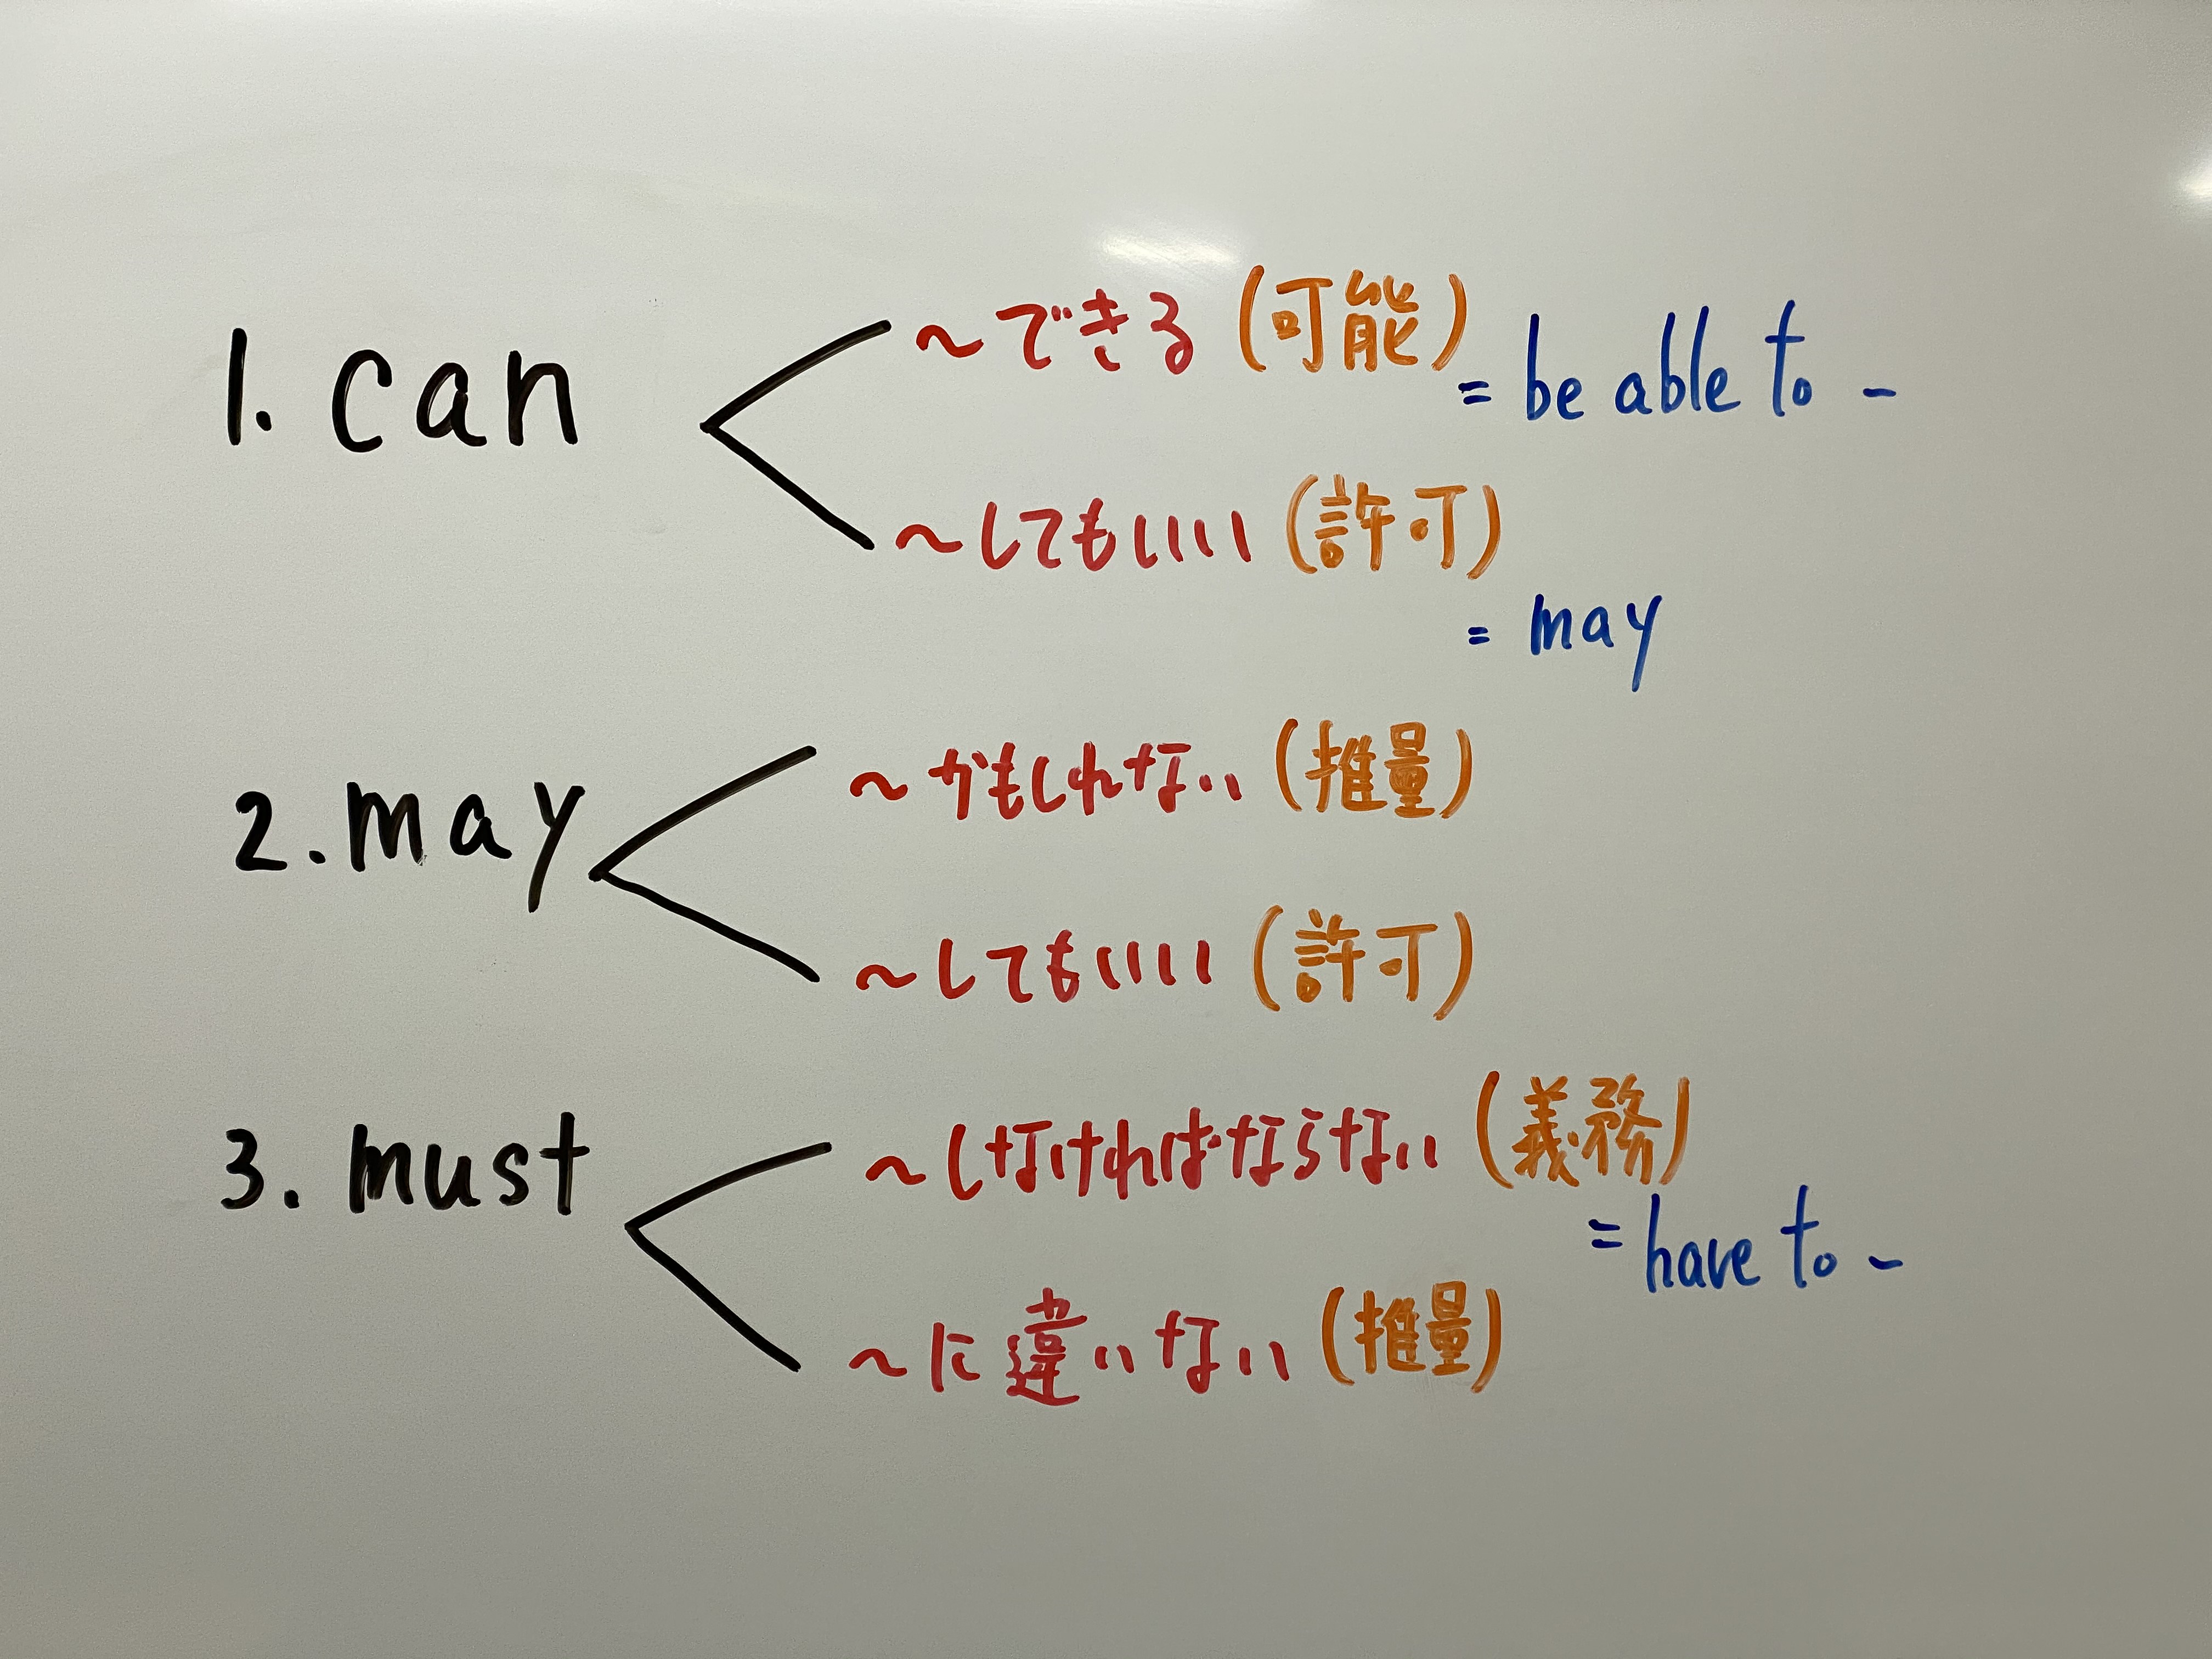 1. can
~できる (可能)
= be able to ~
~してもいい (許可)
= may
2. may
~かもしれない (推量)
~してもいい (許可)
3. must
~しなければならない (義務)
= have to ~
~に違いない (推量)